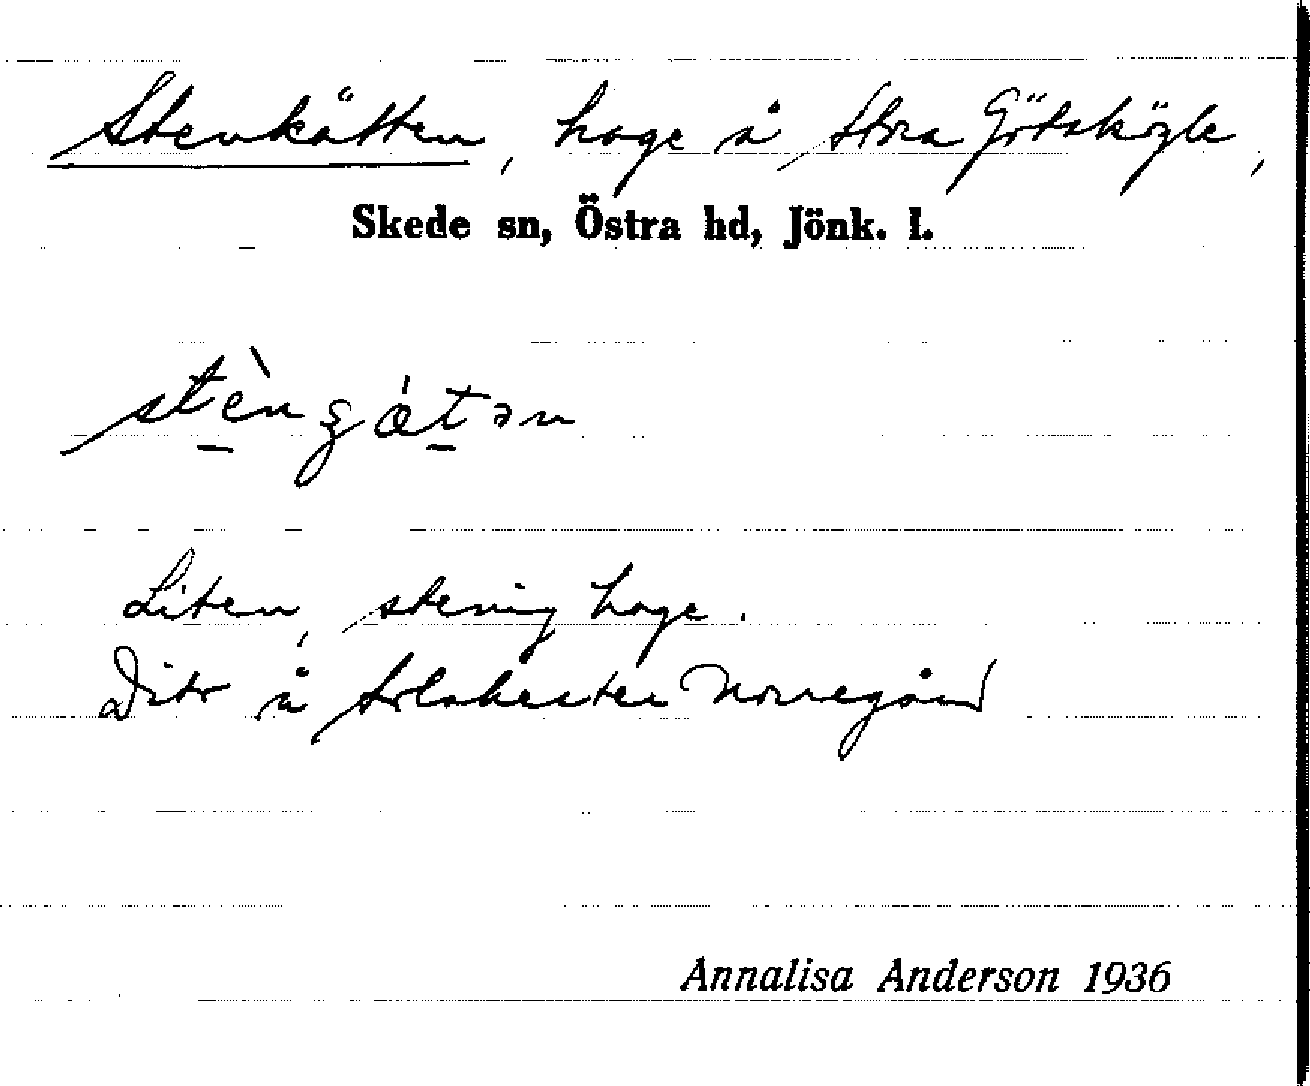 Stenkätten, hage å Stora Götskögle,
Skede sn, Östra hd, Jönk. l.
Liten, stenig hage.
Dito å Norregård
Annalisa Anderson 1936